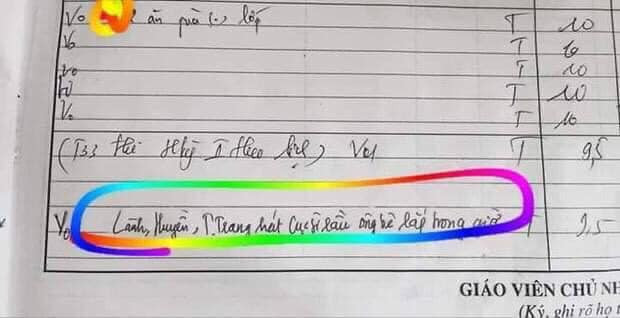 Vo ăn quà (..) lớp T 10
Vo T 10
Vo T 10
Vo T 10
Vo T 10
(T33 thi Hkỳ I theo lịch) Vo1 T 9,5
Vo Lành, Huyền, T.Trang hát Cucsilầu ông bê lắp trong giờ T 9,5
GIÁO VIÊN CHỦ NH
(Ký, ghi rõ họ t